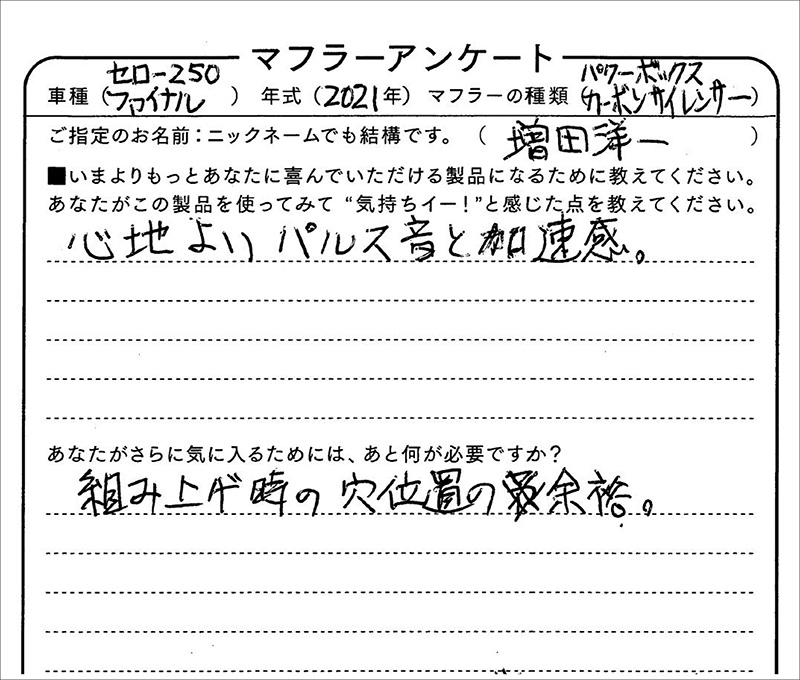 マフラーアンケート
車種（セロー250 ファイナル） 年式（2021年） マフラーの種類（パワーボックス カーボンサイレンサー）
ご指定のお名前：ニックネームでも結構です。（ 増田洋一 ）
■いまよりもっとあなたに喜んでいただける製品になるために教えてください。
あなたがこの製品を使ってみて “気持ちイー！”と感じた点を教えてください。
心地よいパルス音と加速感。
あなたがさらに気に入るためには、あと何が必要ですか？
組み上げ時の穴位置の余裕。